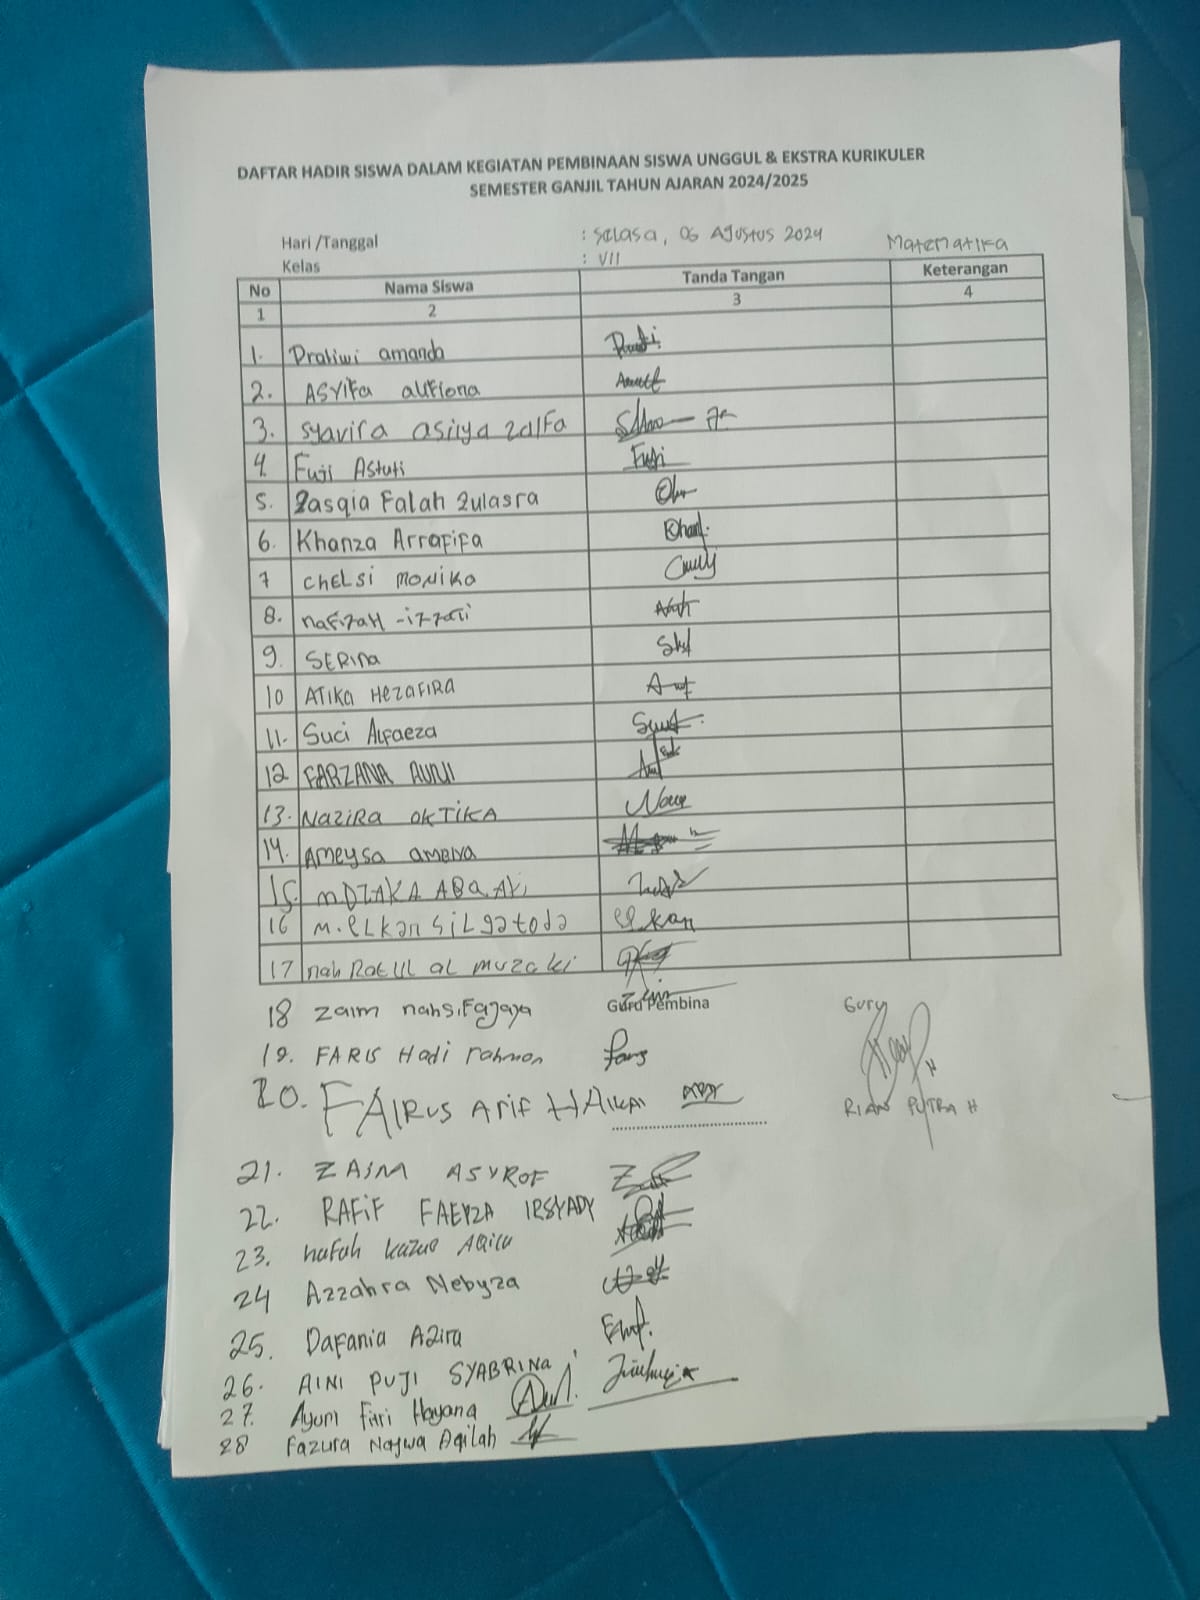 DAFTAR HADIR SISWA DALAM KEGIATAN PEMBINAAN SISWA UNGGUL & EKSTRA KURIKULER
SEMESTER GANJIL TAHUN AJARAN 2024/2025
Hari /Tanggal : Selasa, 06 Agustus 2024 Matematika
Kelas : VII
No Nama Siswa Tanda Tangan Keterangan
1 2 3 4
1. Pratiwi amanda
2. ASYIFA alfiona
3. Syavira asriya zalfa
4. Fuji Astuti Fuji
5. Zasqia Falah Zulasra
6. Khanza Arrafifa
7 CHELSI MONIKA
8. nafizah -izzati
9. SERINA
10 ATIKA HEZAFIRA
11. Suci Alfaeza
12 FARZANA AUNI
13. NAZIRA OKTIKA
14. AMEYSA amelya
15. M DZAKA ABQARI
16 M. ELKAN SILGATODA elkan
17 nah Ratul al muzaki
18 Zaim Guru Pembina Guru
19. FARIS Hadi rahman
20. FAIRUS ARIF HAIKAL
RIAN PUTRA H
21. ZAIM ASYROF
22. RAFIF FAEYZA IRSYADY
23. Aqila
24 Azzahra Nebyza
25. Dafania Azira
26. AINI PUJI SYABRINA
27. Ayum Fitri Hayana
28 Fazura Najwa Aqilah